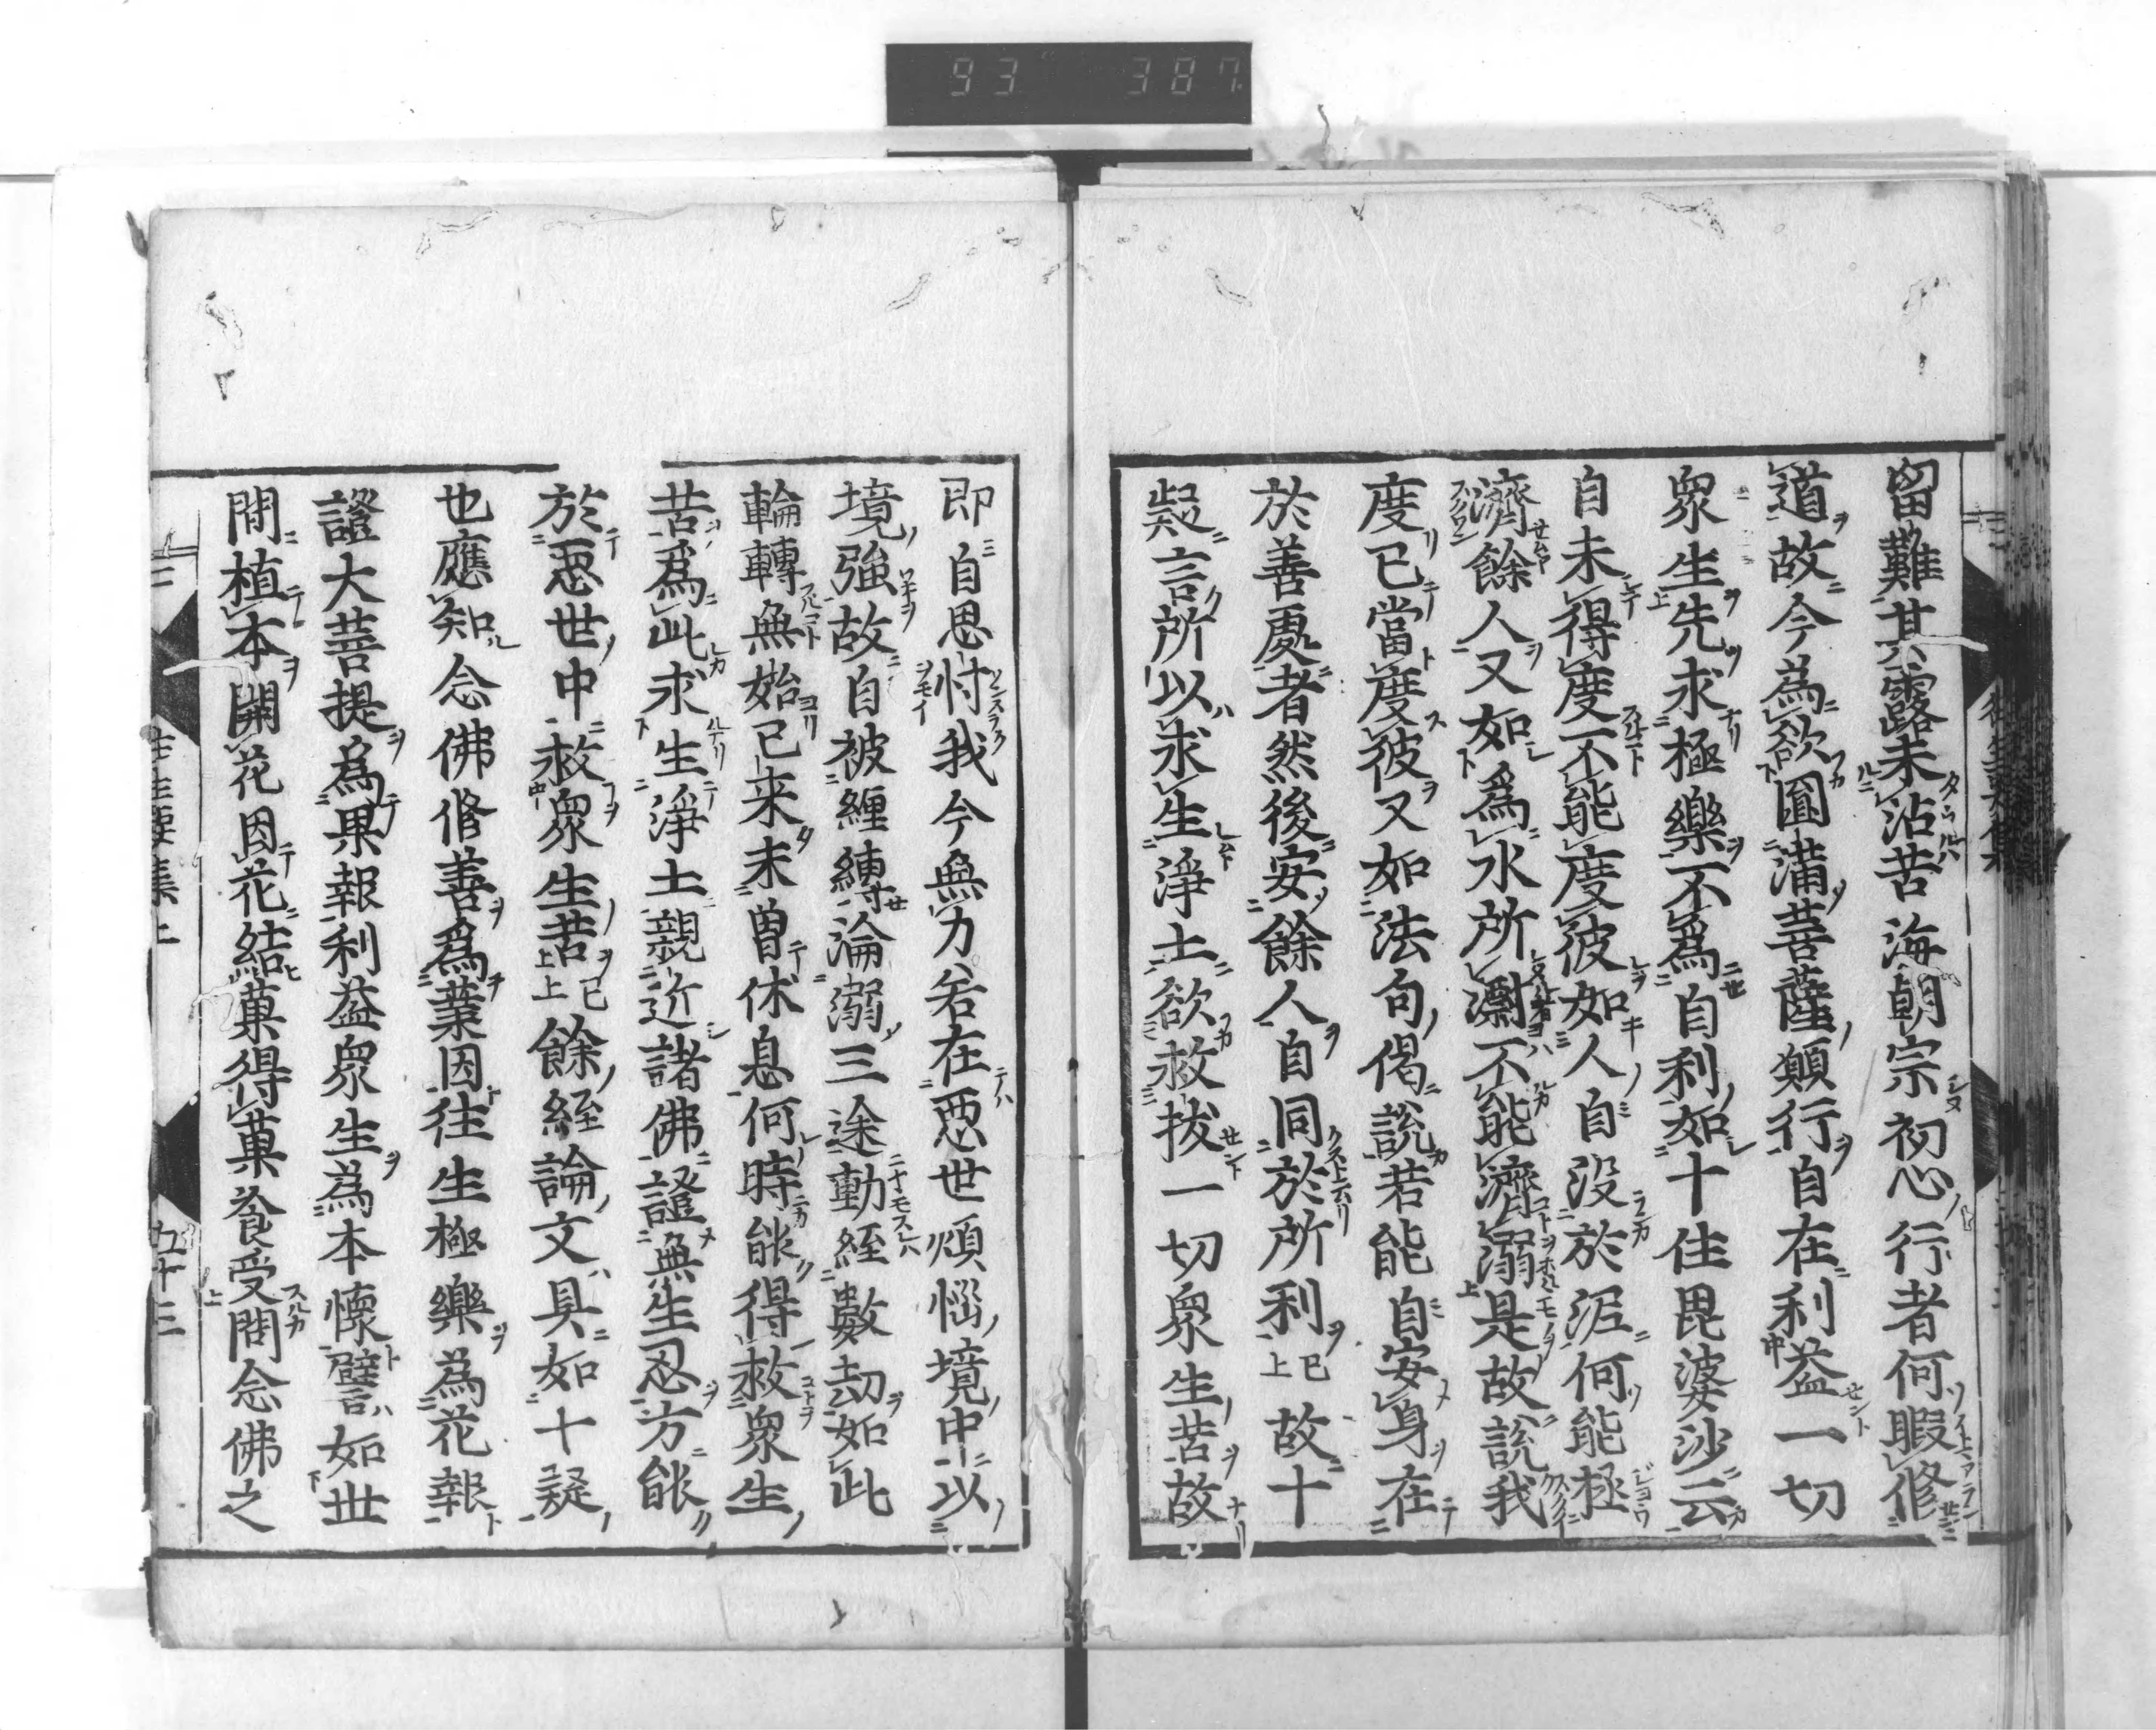 93 387
留難其露未沾苦海朝宗初心行者何暇修
道故今為欲圓滿菩薩願行自在利益一切
衆生先求極樂不爲自利如十住毘婆沙云
自未得度不能度彼如人自没於泥何能拯
濟餘人又如爲水所漂不能濟溺是故説我
度已當度彼又如法句偈説若能自安身在
於善處者然後安餘人自同於所利已上故十
疑言所以求生淨土欲救拔一切衆生苦故
即自思忖我今無力若在惡世煩惱境中以
境強故自被纏縛淪溺三途動經數劫如此
輪轉無始已来未曽休息何時能得救衆生
苦爲此求生淨土親近諸佛證無生忍方能
於惡世中救衆生苦已上餘經論文具如十疑
也應知念佛修善爲業因往生極樂為花報
證大菩提爲果報利益衆生為本懷譬如世
間植本開花因花結菓得菓飡受問念佛之
往生要集上 九十三